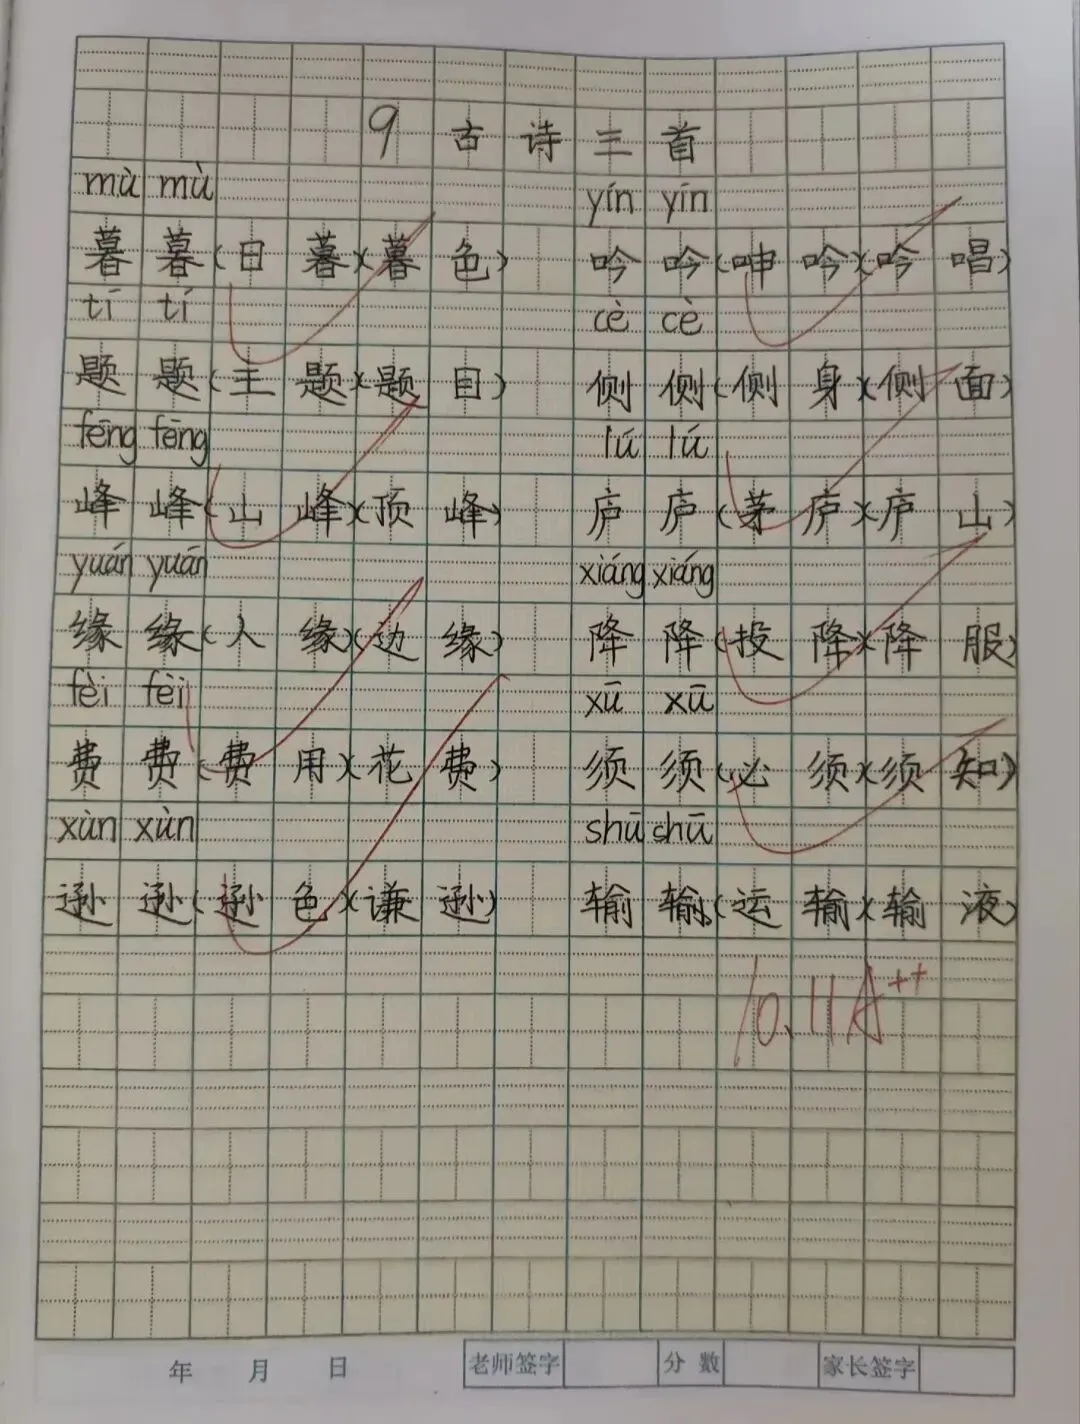 9 古诗三首
mù mù yín yín
暮暮(日暮)(暮色) 吟吟(呻吟)(吟唱)
tí tí cè cè
题题(主题)(题目) 侧侧(侧身)(侧面)
fēng fēng lú lú
峰峰(山峰)(顶峰) 庐庐(茅庐)(庐山)
yuán yuán xiáng xiáng
缘缘(人缘)(边缘) 降降(投降)(降服)
fèi fèi xū xū
费费(费用)(花费) 须须(必须)(须知)
xùn xùn shū shū
逊逊(逊色)(谦逊) 输输(运输)(输液)
10.11 A++
年 月 日 老师签字 分数 家长签字